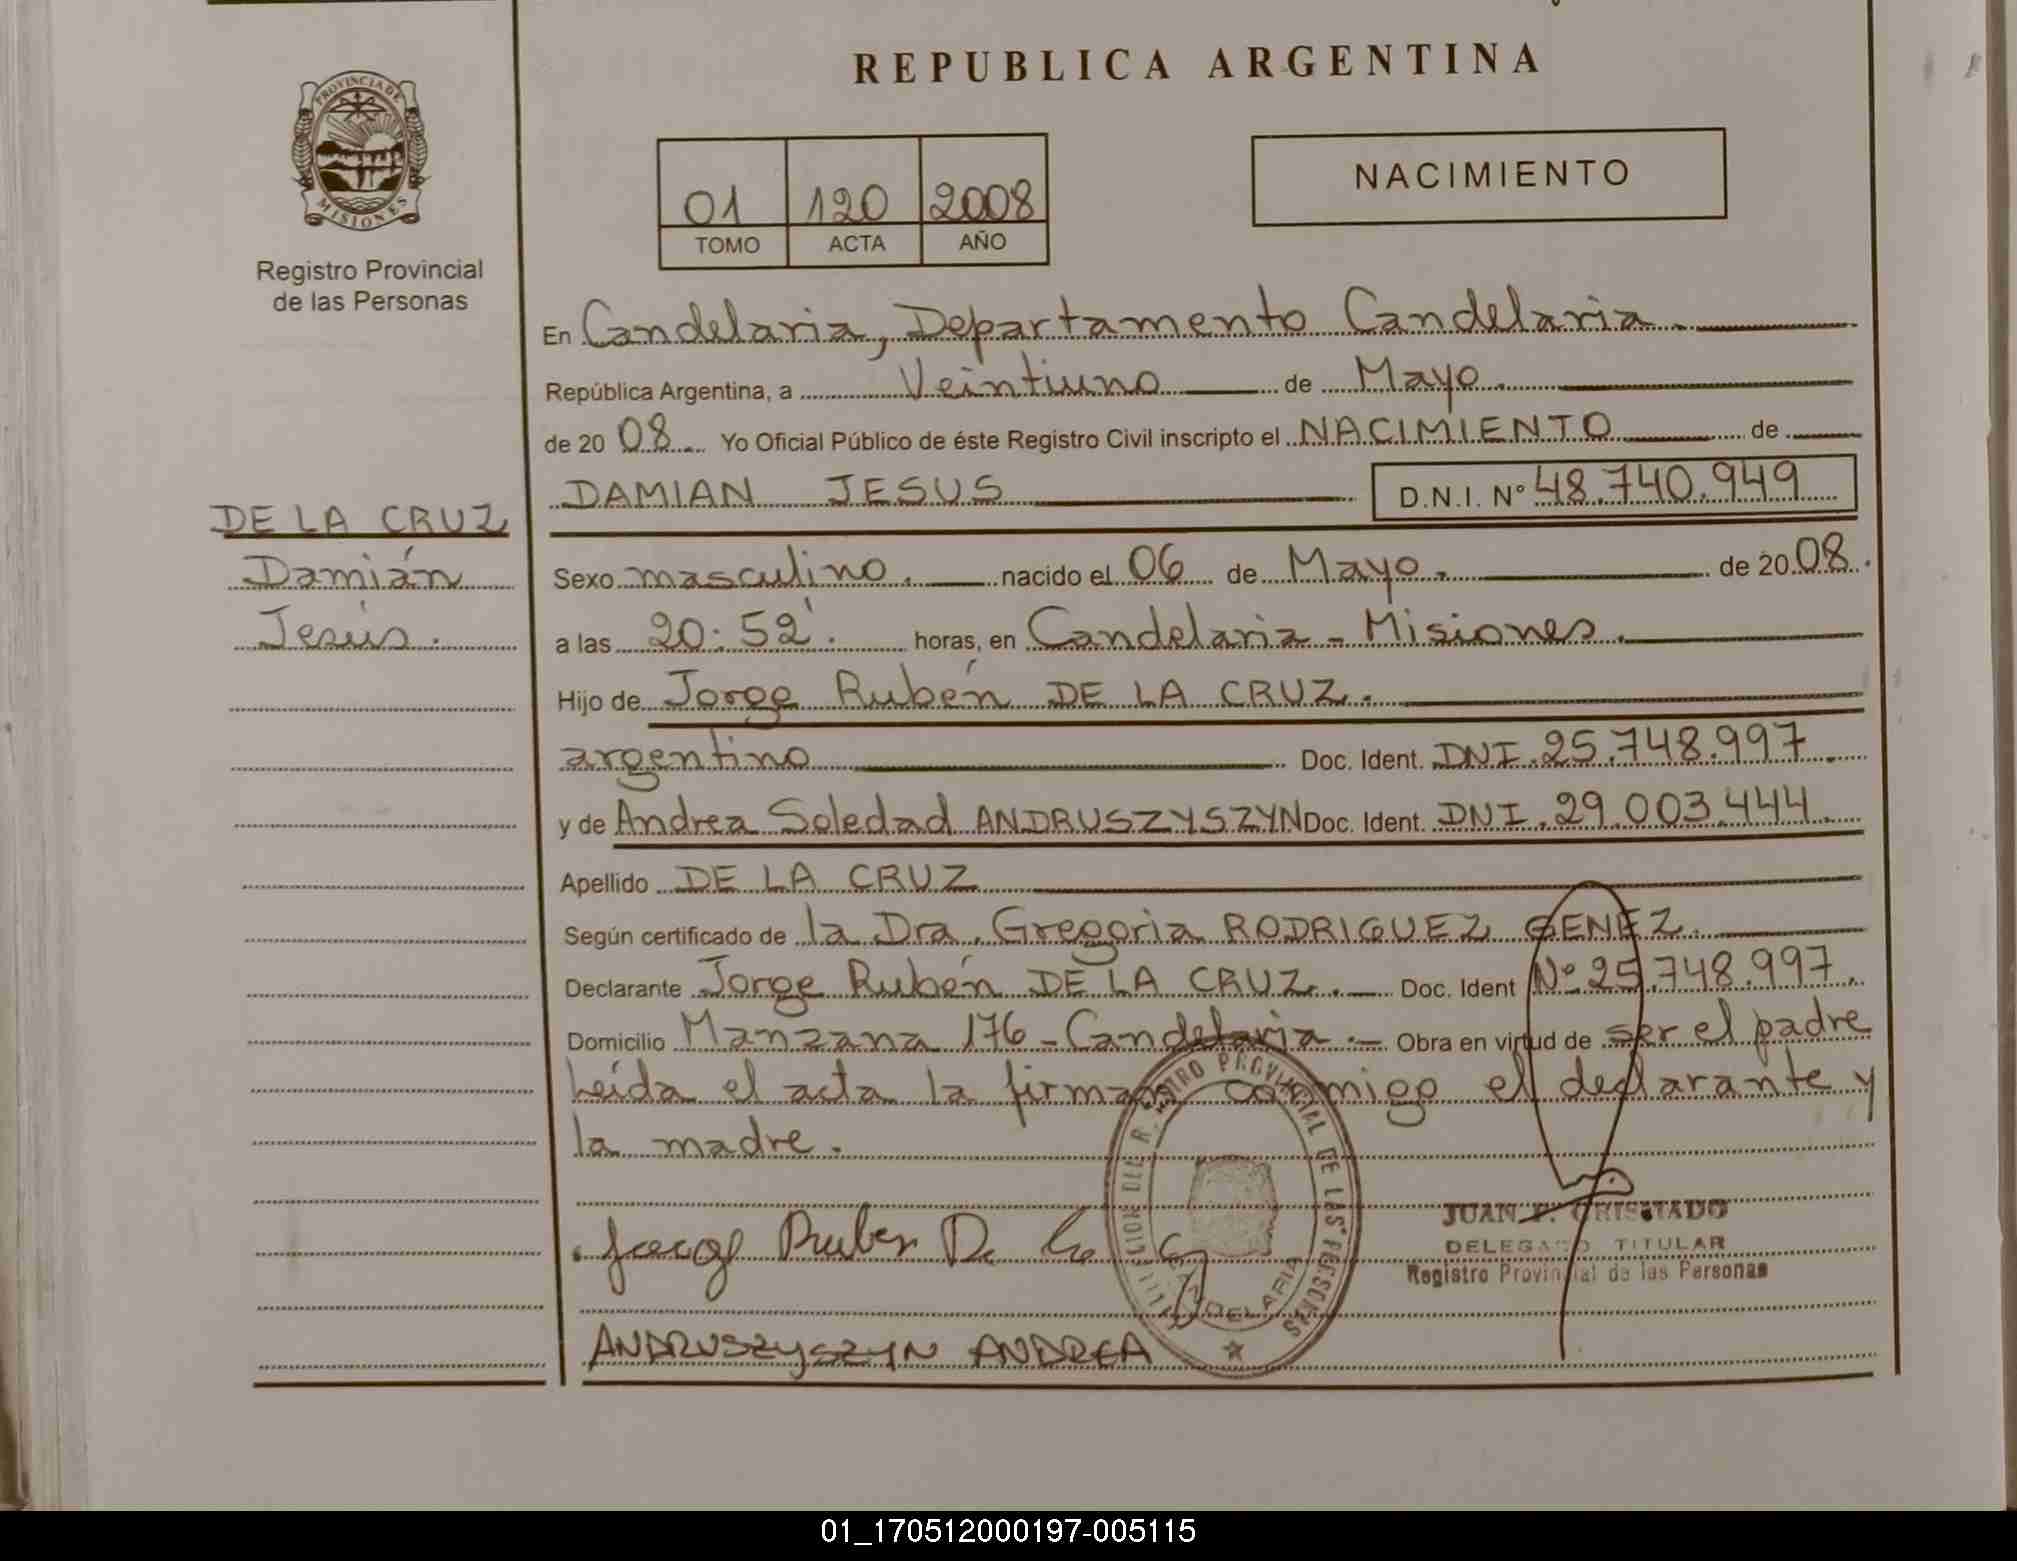 REPUBLICA ARGENTINA
PROVINCIA DE
MISIONES
Registro Provincial
de las Personas
NACIMIENTO
01 120 2008
TOMO ACTA AÑO
En Candelaria, Departamento Candelaria.
República Argentina, a Veintiuno de Mayo.
de 2008 Yo Oficial Público de éste Registro Civil inscripto el NACIMIENTO de
DAMIAN JESUS D.N.I. Nº 48.740.949
DE LA CRUZ
Damián
Jesús.
Sexo masculino. nacido el 06 de Mayo. de 2008.
a las 20:52'. horas, en Candelaria - Misiones.
Hijo de Jorge Rubén DE LA CRUZ.
argentino Doc. Ident. DNI. 25.748.997.
y de Andrea Soledad ANDRUSZYSZYN Doc. Ident. DNI. 29.003.444.
Apellido DE LA CRUZ
Según certificado de la Dra. Gregoria RODRIGUEZ GENEZ.
Declarante Jorge Rubén DE LA CRUZ. Doc. Ident Nº 25.748.997.
Domicilio Manzana 176 - Candelaria. Obra en virtud de ser el padre
Leída el acta la firman conmigo el declarante y
la madre.
Jorge Ruben De la C
REGISTRO PROVINCIAL DE LAS PERSONAS
CANDELARIA
JUAN
DELEGADO TITULAR
Registro Provincial de las Personas
ANDRUSZYSZYN ANDREA
01_170512000197-005115